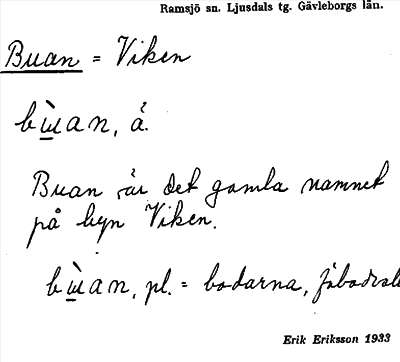 Ramsjö sn. Ljusdals tg. Gävleborgs län.
Buan = Viken
bùan, å.
Buan är det gamla namnet
på byn Viken.
bùan, pl. = bodarna,
Erik Eriksson 1933